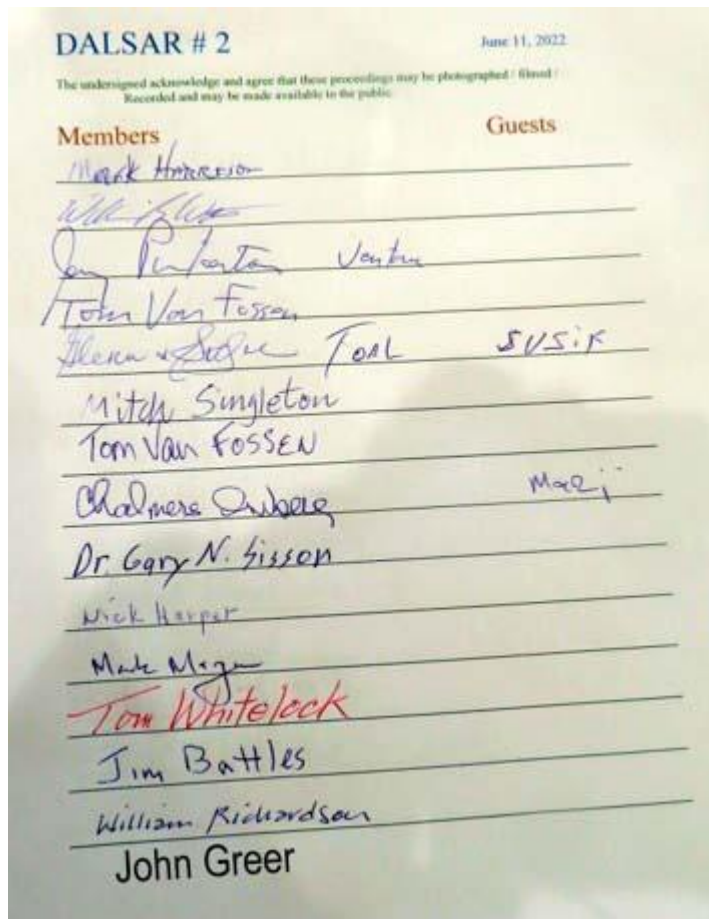 DALSAR # 2 June 11, 2022
The undersigned acknowledge and agree that these proceedings may be photographed / filmed /
Recorded and may be made available to the public.
Members Guests
Mark Harrison
Tom Van Fossen
Toal
Mitch Singleton
Tom Van FOSSEN
Chalmers
Dr. Gary N. Sisson
Nick Harper
Mark
Tom Whitelock
Jim Battles
William Richardson
John Greer